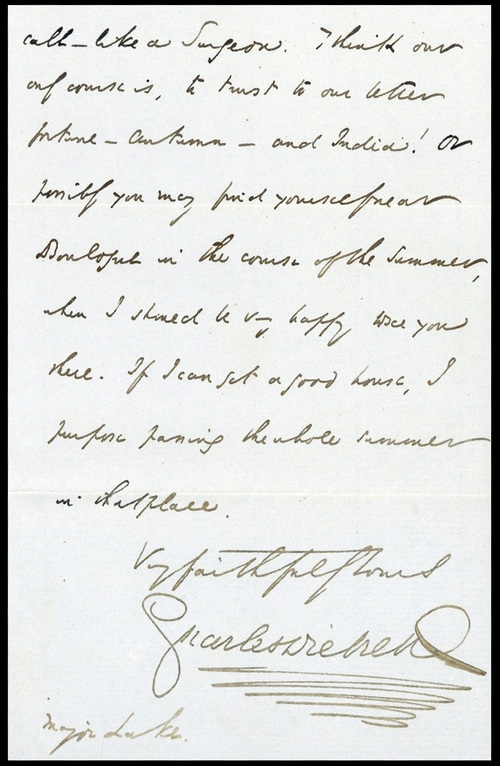 call – like a Surgeon. I think our
only course is, to trust to our better
fortune – Autumn – and India! Or
possibly you may find yourself near
Boulogne in the course of the Summer,
when I should be very happy to see you
there. If I can get a good house, I
purpose passing the whole summer
in that place.
Very faithfully Yours
Charles Dickens
Major Luke.